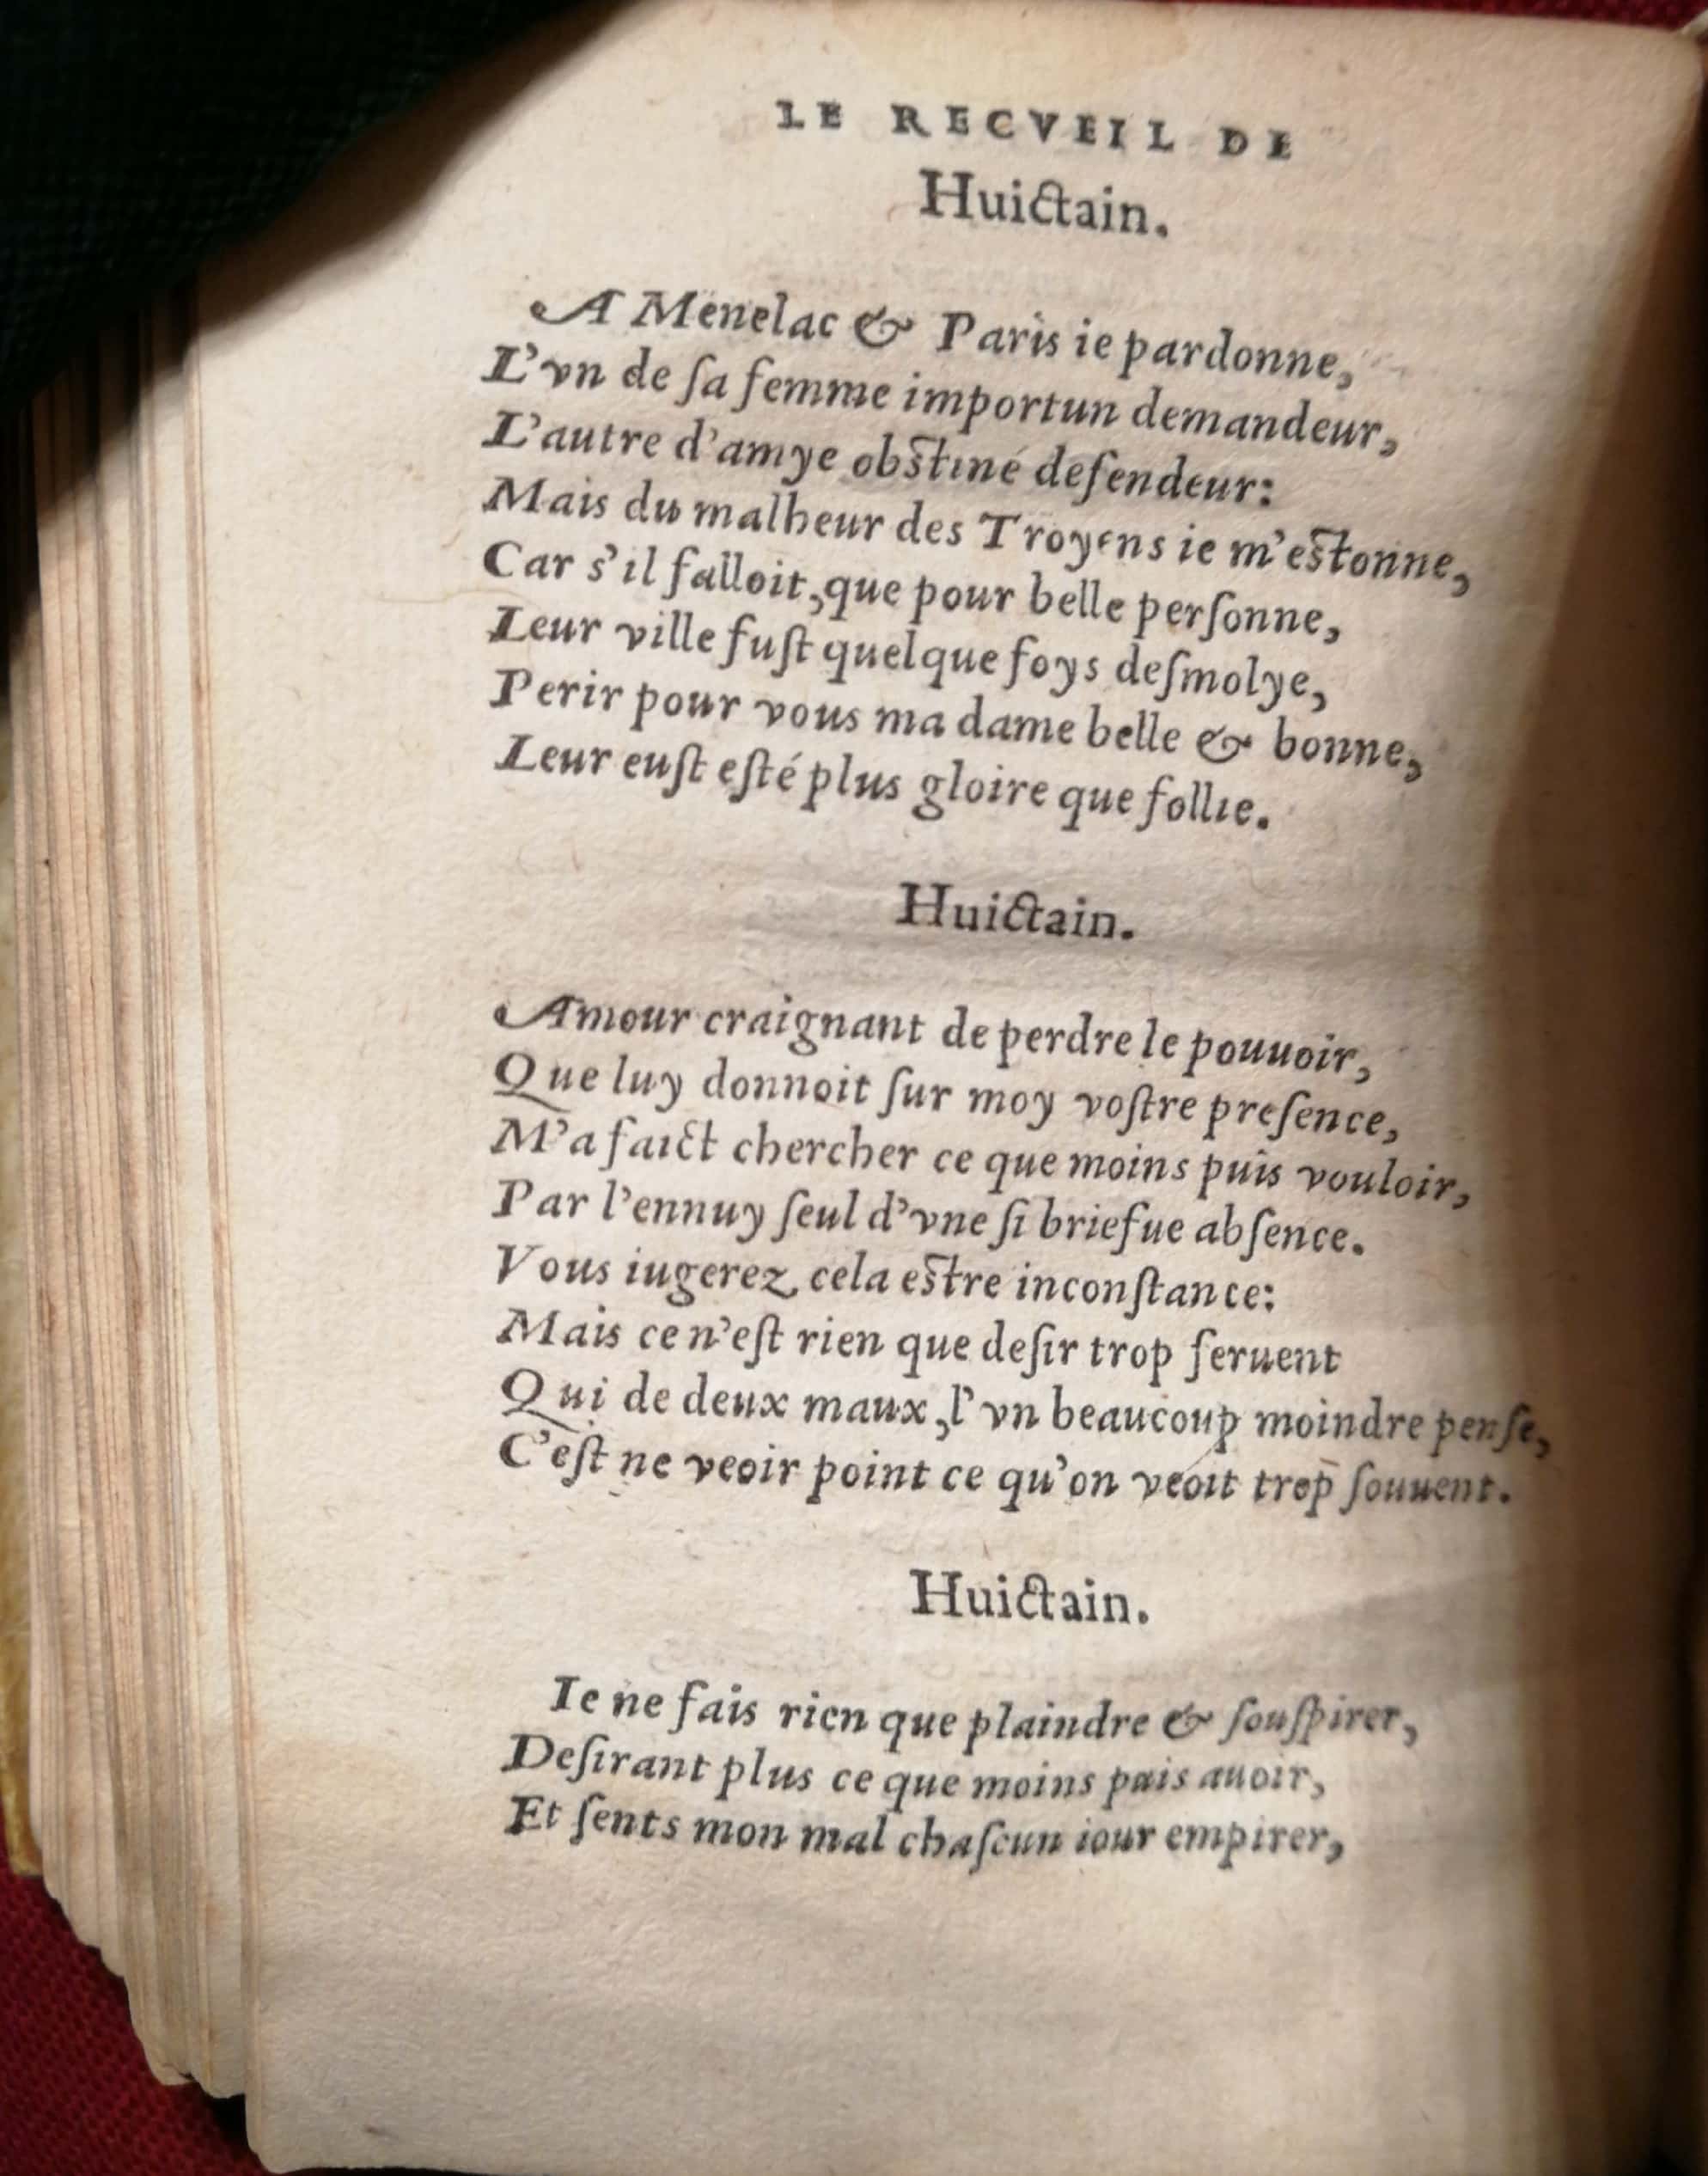 LE RECVEIL DE
Huictain.
A Menelac & Paris ie pardonne,
L'vn de ſa femme importun demandeur,
L'autre d'amye obstiné defendeur:
Mais du malheur des Troyens ie m'estonne,
Car s'il falloit, que pour belle perſonne,
Leur ville fuſt quelque foys deſmolye,
Perir pour vous ma dame belle & bonne,
Leur euſt eſté plus gloire que follie.
Huictain.
Amour craignant de perdre le pouuoir,
Que luy donnoit ſur moy voſtre preſence,
M'a faict chercher ce que moins puis vouloir,
Par l'ennuy ſeul d'vne ſi briefue abſence.
Vous iugerez cela estre inconſtance:
Mais ce n'eſt rien que deſir trop feruent
Qui de deux maux, l'vn beaucoup moindre penſe,
C'eſt ne veoir point ce qu'on veoit trop ſouuent.
Huictain.
Ie ne fais rien que plaindre & ſouſpirer,
Deſirant plus ce que moins puis auoir,
Et ſents mon mal chaſcun iour empirer,